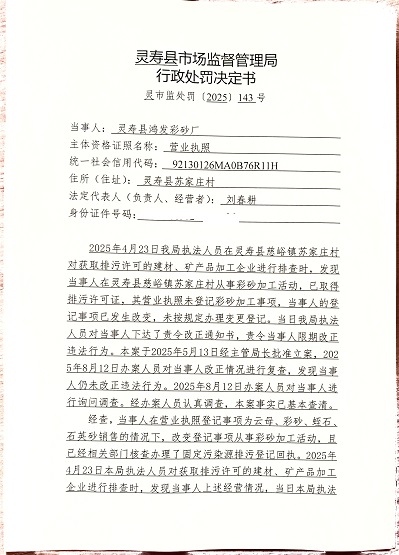 灵寿县市场监督管理局
行政处罚决定书
灵市监处罚〔2025〕143号
当事人：灵寿县鸿发彩砂厂
主体资格证照名称：营业执照
统一社会信用代码：92130126MA0B76R11H
住所（住址）：灵寿县苏家庄村
法定代表人（负责人、经营者）：刘春耕
身份证件号码：
2025年4月23日我局执法人员在灵寿县慈峪镇苏家庄村
对获取排污许可的建材、矿产品加工企业进行排查时，发现
当事人在灵寿县慈峪镇苏家庄村从事彩砂加工活动，已取得
排污许可证，其营业执照未登记彩砂加工事项，当事人的登
记事项已发生改变，未按规定办理变更登记。当日我局执法
人员对当事人下达了责令改正通知书，责令当事人限期改正
违法行为。本案于2025年5月13日经主管局长批准立案，202
5年8月12日办案人员对当事人改正情况进行复查，发现当事
人仍未改正违法行为。2025年8月12日办案人员对当事人进
行询问调查。经办案人员认真调查，本案事实已基本查清。
经查，当事人在营业执照登记事项为云母、彩砂、蛭石、
石英砂销售的情况下，改变登记事项从事彩砂加工活动，且
已经相关部门核查办理了固定污染源排污登记回执。2025年
4月23日本局执法人员对获取排污许可的建材、矿产品加工
企业进行排查时，发现当事人上述经营情况，当日本局执法